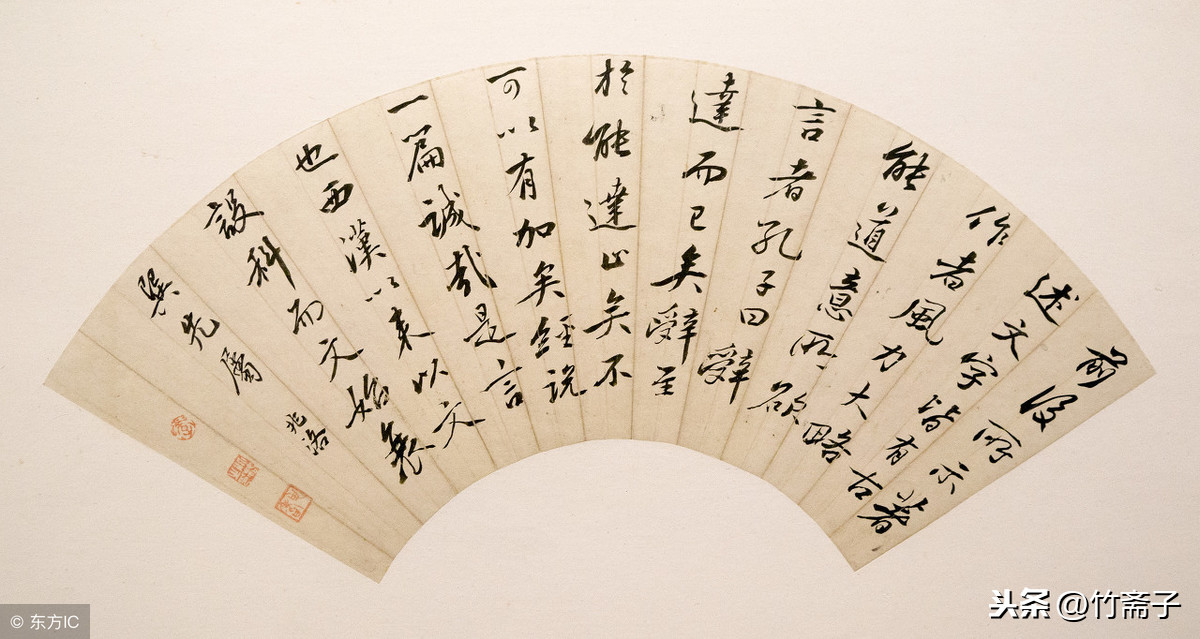 前後所示著
述文字皆有古
作者風力大略
能道意所欲
言者孔子曰辭
達而已矣辭至
於能達止矣不
可以有加矣經説
一篇誠哉是言
也西漢以來以文
設科而文始衰
巽先屬
兆洛
© 东方IC
头条 @竹斋子